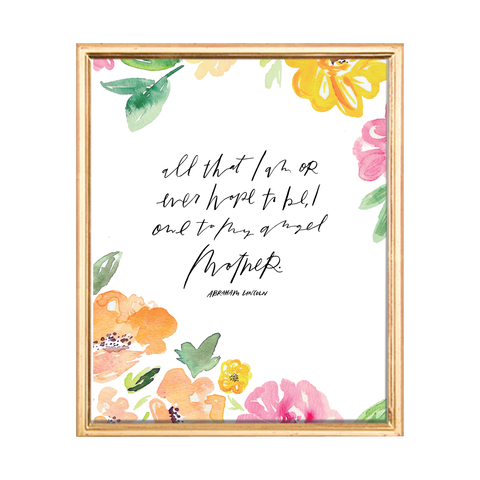 all that I am OR
ever hope to be, I
owe to my angel
Mother.
ABRAHAM LINCOLN